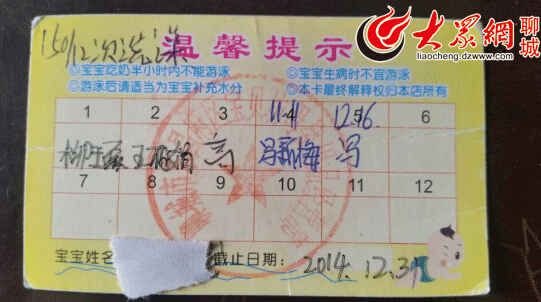 大众网 聊城
liaocheng.dzwww.com
150/12次洗澡
温馨提示
◎宝宝吃奶半小时内不能游泳 ◎宝宝生病时不宜游泳
◎游泳后请适当为宝宝补充水分 ◎本卡最终解释权归本店所有
1 2 3 4 5 6
11.11 12.16
高 冯新梅 冯
7 8 9 10 11 12
宝宝姓名 截止日期: 2014.12.31